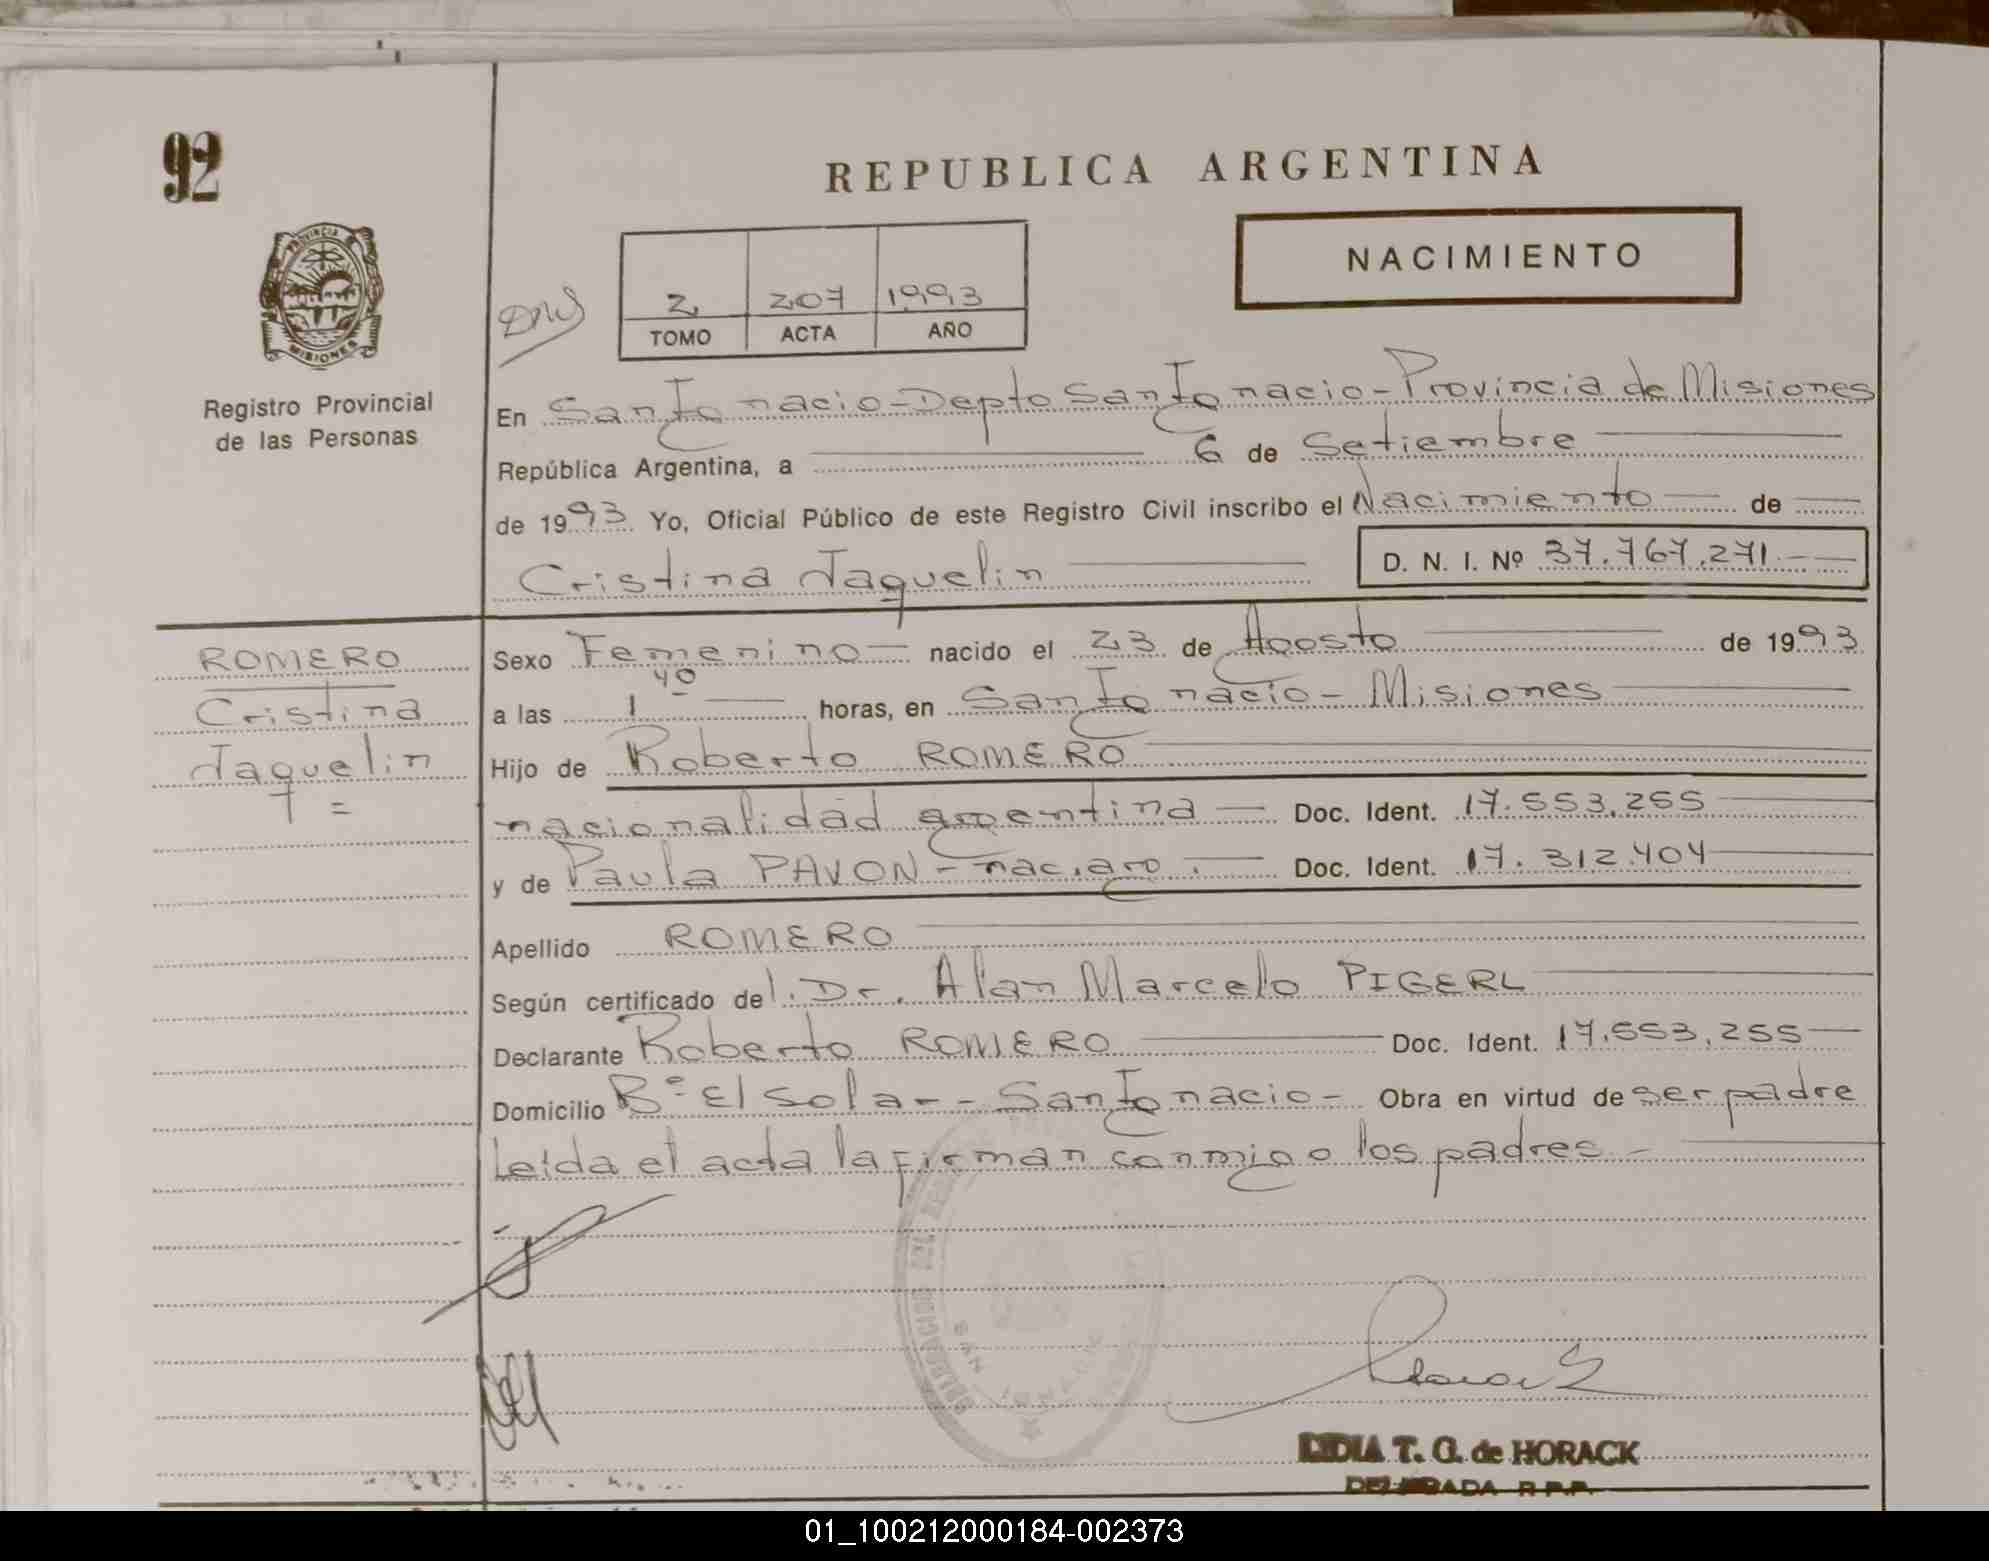 92
REPUBLICA ARGENTINA
NACIMIENTO
PROVINCIA
MISIONES
Registro Provincial
de las Personas
2 207 1993
TOMO ACTA AÑO
En San Ignacio - Depto San Ignacio - Provincia de Misiones
República Argentina, a 6 de Setiembre
de 1993 Yo, Oficial Público de este Registro Civil inscribo el Nacimiento de
Cristina Jaquelin D. N. I. Nº 37.767.271.-
ROMERO
Cristina
Jaquelin
Sexo Femenino nacido el 23 de Agosto de 1993
a las 1 40 horas, en San Ignacio - Misiones
Hijo de Roberto ROMERO
nacionalidad argentina Doc. Ident. 17.553.255
y de Paula PAVON - nac. arg. Doc. Ident. 17.312.404
Apellido ROMERO
Según certificado del. Dr. Alan Marcelo PIGERL
Declarante Roberto ROMERO Doc. Ident. 17.553.255
Domicilio Bº El Solar - San Ignacio - Obra en virtud de ser padre
Leída el acta la firman conmigo los padres.-
SAN IGNACIO
LIDIA T. G. de HORACK
DELEGADA R.P.P.
01_100212000184-002373